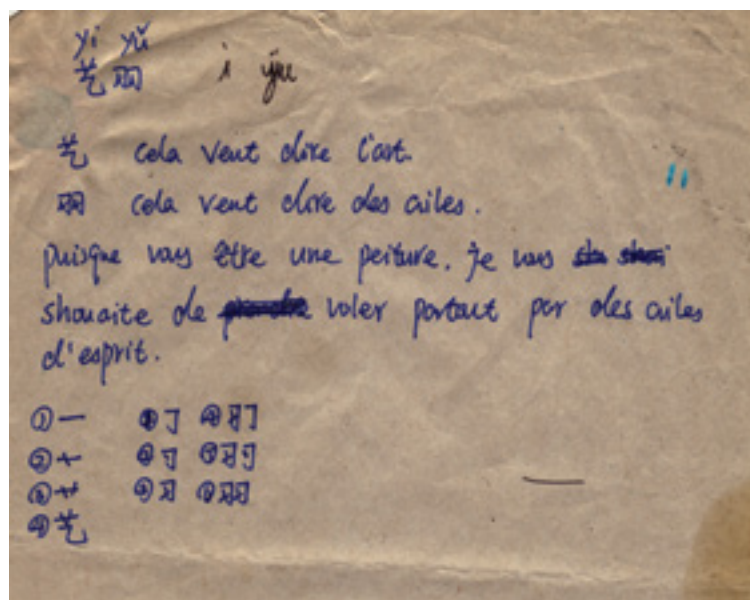 yi yǔ
艺 羽 i yu
艺 cela veut dire l'art.
羽 cela veut dire des ailes.
puisque vous être une peiture. je vous
shouaite de voler partout par des ailes
d'esprit.
① 一
②
③ 艹
④ 艺